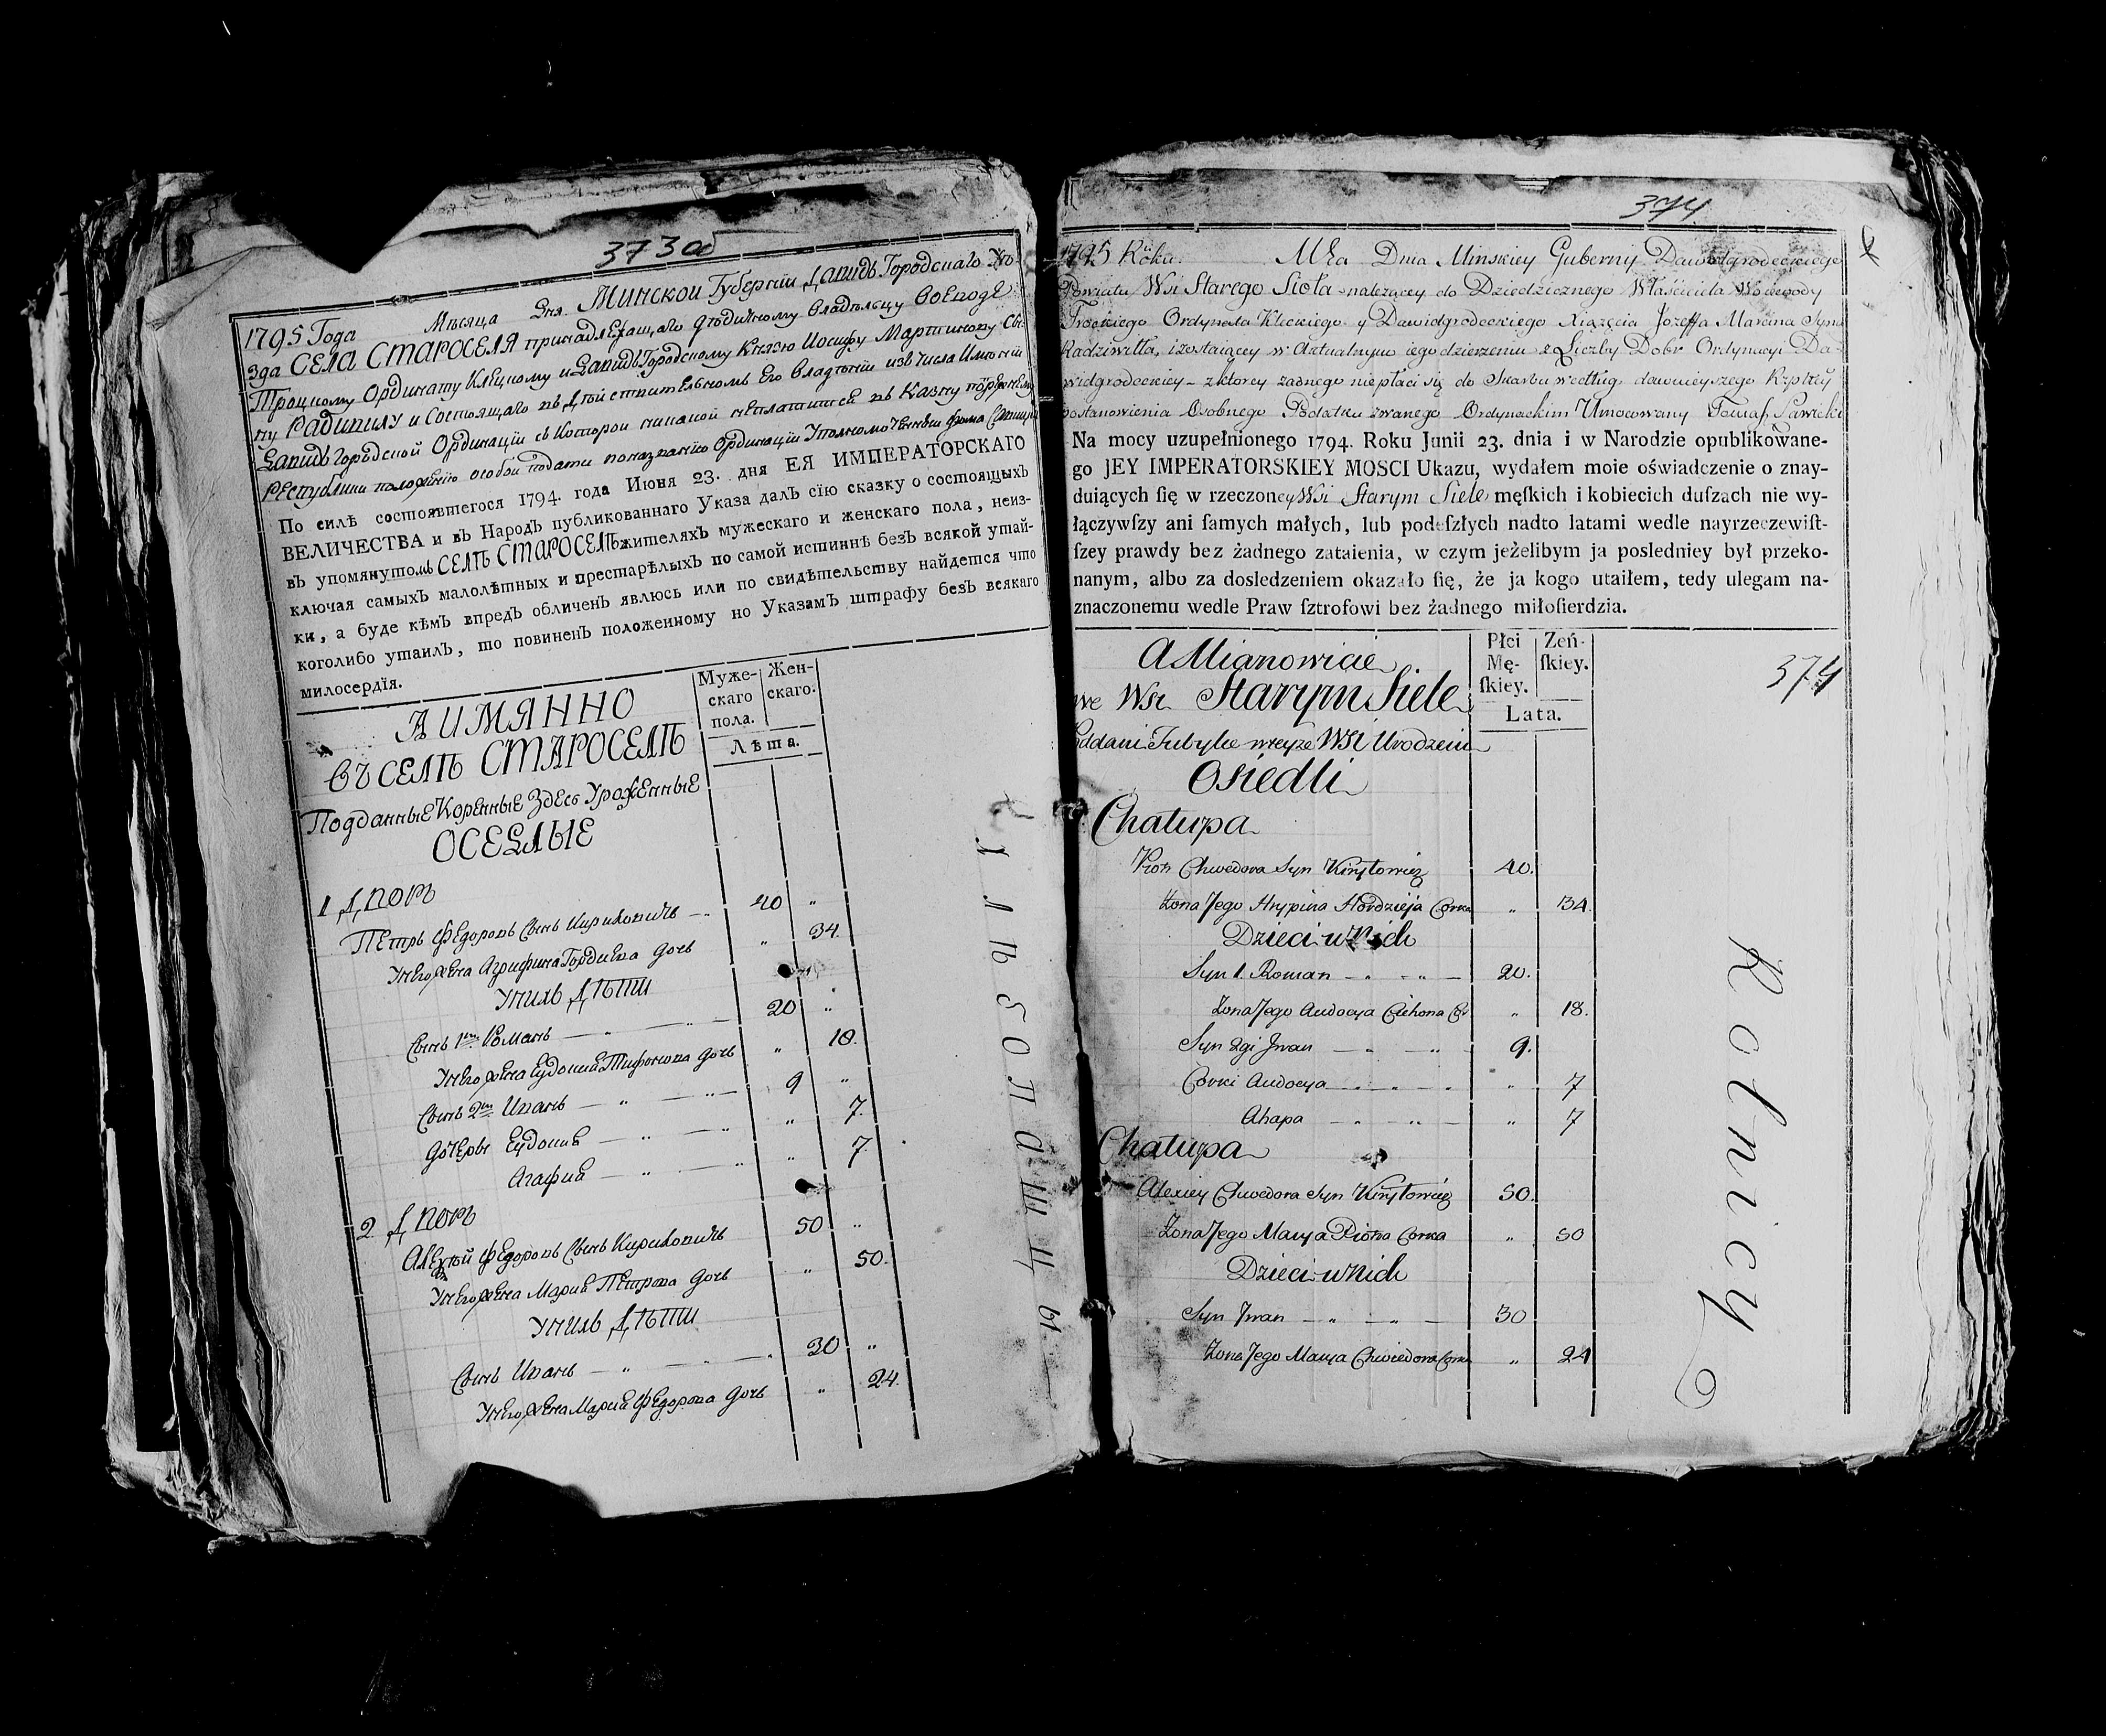 373об
1795 Года Мѣсяца Дня Минской Губерніи Давидъ Городскаго Уѣ-
зда СЕЛА СТАРОСЕЛЯ принадлежащаго дѣдичному владѣльцу Воеводе
Троцкому Ординату Клецкому и Давидъ Городскому Князю Иосифу Мартинову Сы-
ну Радивилу и состоящаго въ дѣйствительномъ его владѣніи изъ числа Имѣній
Давидъ Городской Ординаціи съ которой никакой неплатится въ казну по прежнему
Республики положенію особой подати по названію Ординаціи Уполномоченный Фома
По силѣ состоявшегося 1794. года Июня 23. дня ЕЯ ИМПЕРАТОРСКАГО
ВЕЛИЧЕСТВА и въ Народъ публикованнаго Указа далъ сїю сказку о состоящыхъ
въ упомянутомъ СЕЛѢ СТАРОСЕЛѢ жителяхъ мужескаго и женскаго пола, неиз-
ключая самыхъ малолѣтныхъ и престарѣлыхъ по самой истиннѣ безъ всякой утай-
ки, а буде кѣмъ впредъ обличенъ явлюсь или по свидѣтельству найдется что
коголибо утаилъ, то повиненъ положенному по Указамъ штрафу безъ всякаго
милосердїя.
А ИМЯННО
ВЪ СЕЛѢ СТАРОСЕЛѢ
Подданные Коренные Здесь Уроженные
ОСЕДЛЫЕ
Муже-
скаго
пола.
Жен-
скаго.
Лѣта.
1 Дворъ
Петръ Федоровъ Сынъ Кириловичъ — 40 „
У него жена Агрифина Гордиева дочь „ 34.
У нихъ Дѣти
Сынъ 1й Романъ — „ — 20 „
У него жена Еудокия Тифонова дочь „ 18.
Сынъ 2й Иванъ — „ — 9 „
Дочеры Еудокия — „ — „ 7.
Агафия — „ — „ 7.
2 Дворъ
Алексѣй Федоровъ Сынъ Кириловичъ 50 „
У него жена Мария Петрова дочь „ 50.
У нихъ Дѣти
Сынъ Иванъ — „ — 30 „
У него жена Мария Федорова дочь „ 24.
ХЛѢБОПАШЦЫ
374
1795 Roku Msca Dnia Minskiey Gubernij Dawidgrodeckiego
Powiatu Wsi Starego Sioła należącey do Dziedzicznego Właściciela Wojewody
Trockiego Ordynata Kleckiego y Dawidgrodeckiego Xiążęcia Jozeffa Marcina Syna
Radziwiłła, i zostaiącey w Aktualnym iego dzierzeniu z Liczby Dobr Ordynacyi Da-
widgrodeckiey - z ktorey żadnego niepłaci się do Skarbu według dawnieyszego Rzpltey
postanowienia Osobnego Podatku zwanego Ordynackim Umocowany Tomasz Sawicki
Na mocy uzupełnionego 1794. Roku Junii 23. dnia i w Narodzie opublikowane-
go JEY IMPERATORSKIEY MOSCI Ukazu, wydałem moie oświadczenie o znay-
duiących ſię w rzeczoney Wsi Starym Siele męſkich i kobiecich duſzach nie wy-
łączywſzy ani ſamych małych, lub podeſzłych nadto latami wedle nayrzeczewiſt-
ſzey prawdy bez żadnego zataienia, w czym jeżelibym ja posledniey był przeko-
nanym, albo za dosledzeniem okazało ſię, że ja kogo utaiłem, tedy ulegam na-
znaczonemu wedle Praw ſztrofowi bez żadnego miłoſierdzia.
A Mianowicie
we Wsi Starym Siele
Poddani Tubylce w teyże Wsi Urodzeni
Osiedli
Płci
Mę-
ſkiey.
Zeń-
ſkiey.
Lata.
374
Chałupa
Piotr Chwedora Syn Kiryłowicz 40.
Żona Jego Hrypina Hordzieja Corka „ 34.
Dzieci u Nich
Syn 1. Roman — „ — 20.
Żona Jego Audocya Cichona Cor „ 18.
Syn 2gi Jwan — „ — 9.
Corki Audocya — „ — „ 7
Ahapa — „ — „ 7
Chałupa
Alexiey Chwedora Syn Kiryłowicz 50.
Żona Jego Marya Piotra Corka „ 50
Dzieci u Nich
Syn Jwan — „ — 30
Żona Jego Marya Chwiedora Corka „ 24
Rolnicy